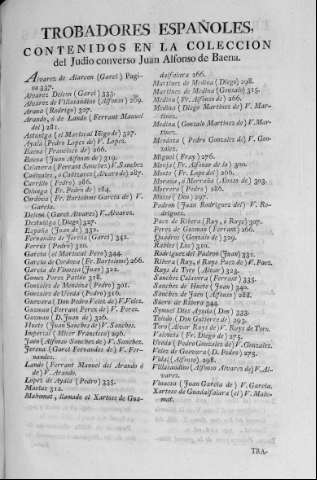 TROBADORES ESPAÑOLES,
CONTENIDOS EN LA COLECCION
del Judio converso Juan Alfonso de Baena.
Alvares de Alarcon (Garci) Pagi-
na 337.
Alvares Deleon (Garci) 333.
Alvares de Villasandino (Alfonso) 269.
Arana (Rodrigo) 307.
Arando, ó de Lando (Ferrant Manuel
del) 281.
Astuniga (el Mariscal Iñigo de) 327.
Ayala (Pedro Lopez de) V. Lopez.
Baena (Francisco de) 266.
Baena (Juan Alfonso de) 319.
Calavera (Ferrant Sanchez) V. Sanchez
Cañizales, ó Cañizares (Alvaro de) 287.
Carrillo (Pedro) 286.
Colunga (Fr. Pedro de) 284.
Cordova (Fr. Bartholomé Garcia de) V.
Garcia.
Deleon (Garci Alvarez) V. Alvarez.
Destuñiga (Diego)
España (Juan de) 332.
Fernandez de Jerena (Garci) 342.
Ferrús (Pedro) 310.
Garcia (el Mariscal Pero) 344.
Garcia de Cordova (Fr. Bartolomé) 266.
Garcia de Vinuesa (Juan) 322.
Gomez Perez Patiño 318.
Gonzalez de Mendoza (Pedro) 301.
Gonzalez de Uzeda (Pedro) 316.
Guevara (Don Pedro Velez de) V. Velez.
Guzman (Ferrant Perez de) V. Perez.
Guzman (D. Juan de) 326.
Huete (Juan Sanchez de) V. Sanchez.
Imperial (Micer Francisco) 296.
Jaen (Alfonso Sanchez de) V. Sanchez.
Jerena (Garci Fernandez de) V. Fer-
nandez.
Lando (Ferrant Manuel del Arando ó
de) V. Arando.
Lopez de Ayala (Pedro) 335.
Macias 312.
Mahomat, llamado el Xartosse de Gua-
dalfaiara 266.
Martinez de Medina (Diego) 298.
Martinez de Medina (Gonzalo) 315.
Medina (Fr. Alfonso de) 266.
Medina (Diego Martinez de) V. Mar-
tinez.
Medina (Gonzalo Martinez de) V. Mar-
tinez.
Mendoza (Pedro Gonzalez de) V. Gon-
zalez.
Miguel (Fray) 276.
Monja (Fr. Alfonso de la) 300.
Monte (Fr. Lope del) 266.
Moraña, ó Morraña (Alonso de) 303.
Morrera (Pedro) 286.
Mossé (Don) 297.
Padron (Juan Rodriguez del) V. Ro-
driguez.
Paez de Ribera (Ruy, ó Rayz) 307.
Perez de Guzman (Ferrant) 266.
Quadros (Gonzalo de) 329.
Rabbés (Los) 310.
Rodriguez del Padron (Juan) 331.
Ribera (Ruy, ó Rayz Paez de) V. Paez.
Rays de Toro (Alvar) 323.
Sanchez Calavera (Ferrant) 333.
Sanchez de Huete (Juan) 342.
Sanchez de Jaen (Alfonso) 288.
Suero de Ribera 344.
Symuel Dios Ayuda (Don) 333.
Toledo (Don Gutierre de) 293.
Toro (Alvar Rays de) V. Rays de Toro.
Valencia (Fr. Diego de) 275.
Uzeda (Pedro Gonzalez de) V. Gonzalez.
Velez de Guevara (D. Pedro) 275.
Vidal (Alfonso) 298.
Villasandino (Alfonso Alvarez de) V. Al-
varez.
Vinuesa (Juan Garcia de) V. Garcia.
Xartosse de Guadalfaiara (el) V. Maho-
mat.
TRA-